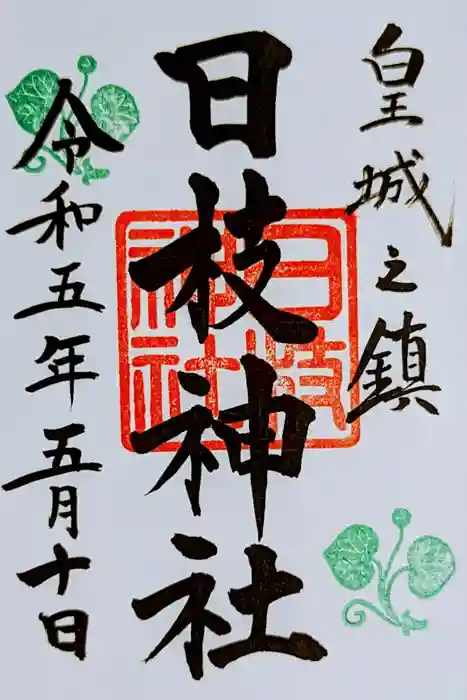 皇城之鎮
日枝神社
令和五年五月十日
日枝
神社